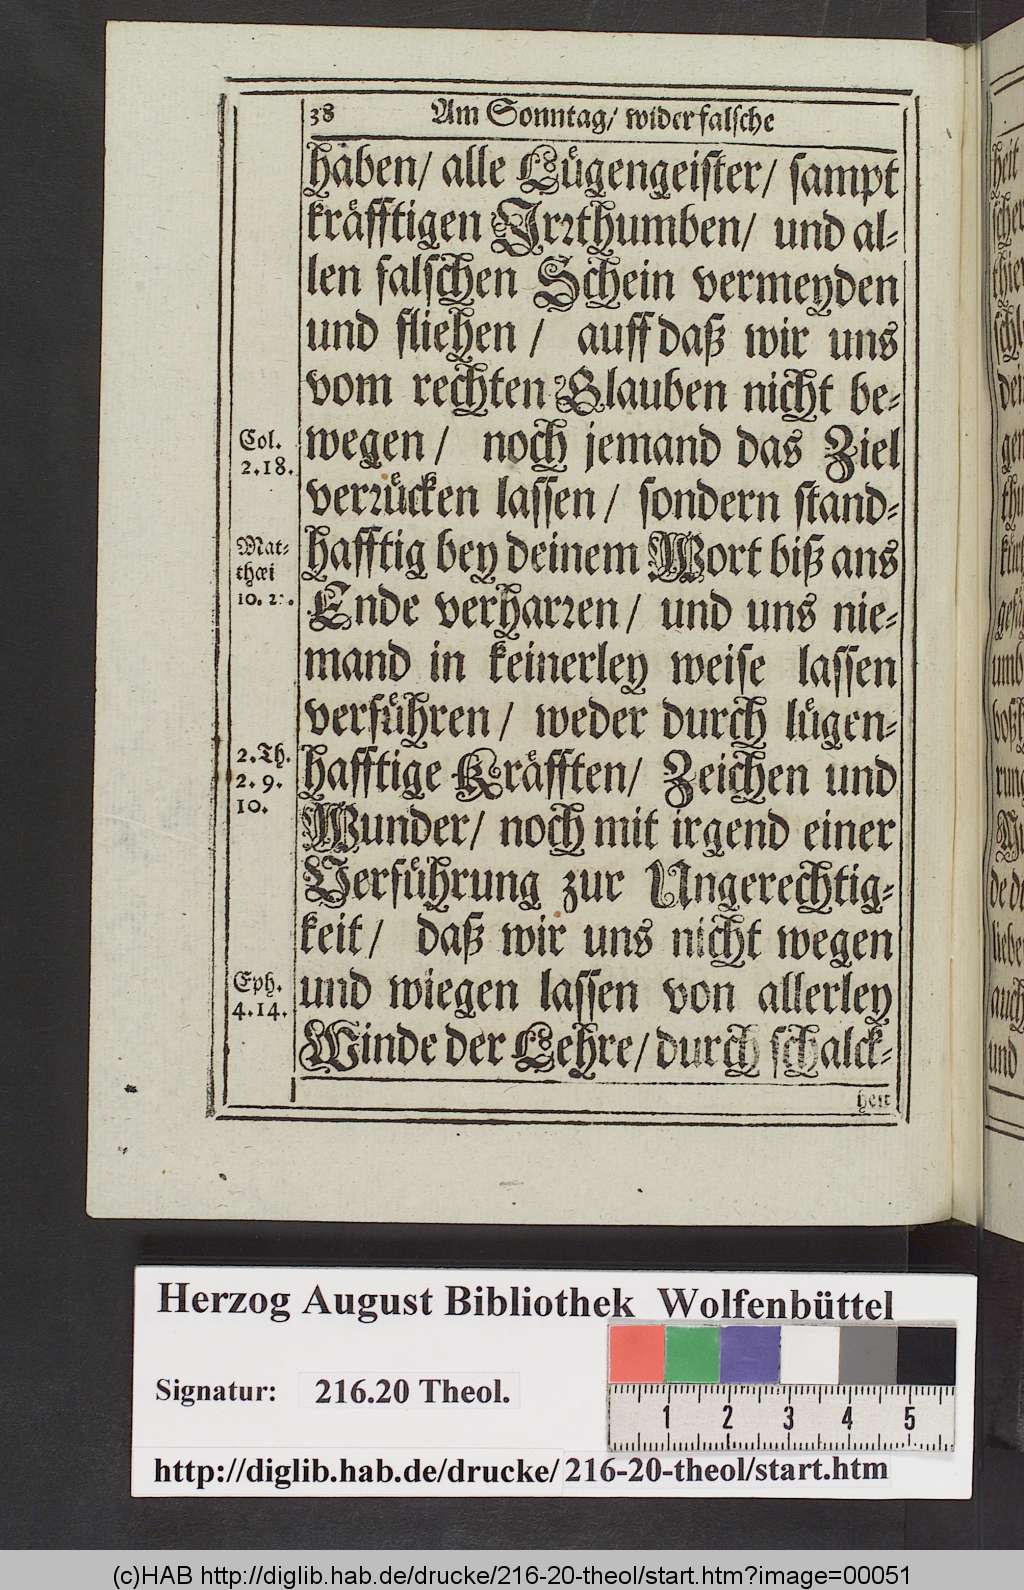 38 Am Sonntag/ wider falsche
haben/ alle Lügengeister/ sampt
kräfftigen Irrthumben/ und al-
len falschen Schein vermeyden
und fliehen/ auff daß wir uns
vom rechten Glauben nicht be-
wegen/ noch jemand das Ziel
verrücken lassen/ sondern stand-
hafftig bey deinem Wort biß ans
Ende verharren/ und uns nie-
mand in keinerley weise lassen
verführen/ weder durch lügen-
hafftige Kräfften/ Zeichen und
Wunder/ noch mit irgend einer
Verführung zur Ungerechtig-
keit/ daß wir uns nicht wegen
und wiegen lassen von allerley
Winde der Lehre/ durch schalck-
heit
Col.
2.18.
Mat-
thæi
10.
2.Th.
2.9.
10.
Eph.
4.14.
Herzog August Bibliothek Wolfenbüttel
Signatur: 216.20 Theol.
1 2 3 4 5
http://diglib.hab.de/drucke/216-20-theol/start.htm
(c)HAB http://diglib.hab.de/drucke/216-20-theol/start.htm?image=00051